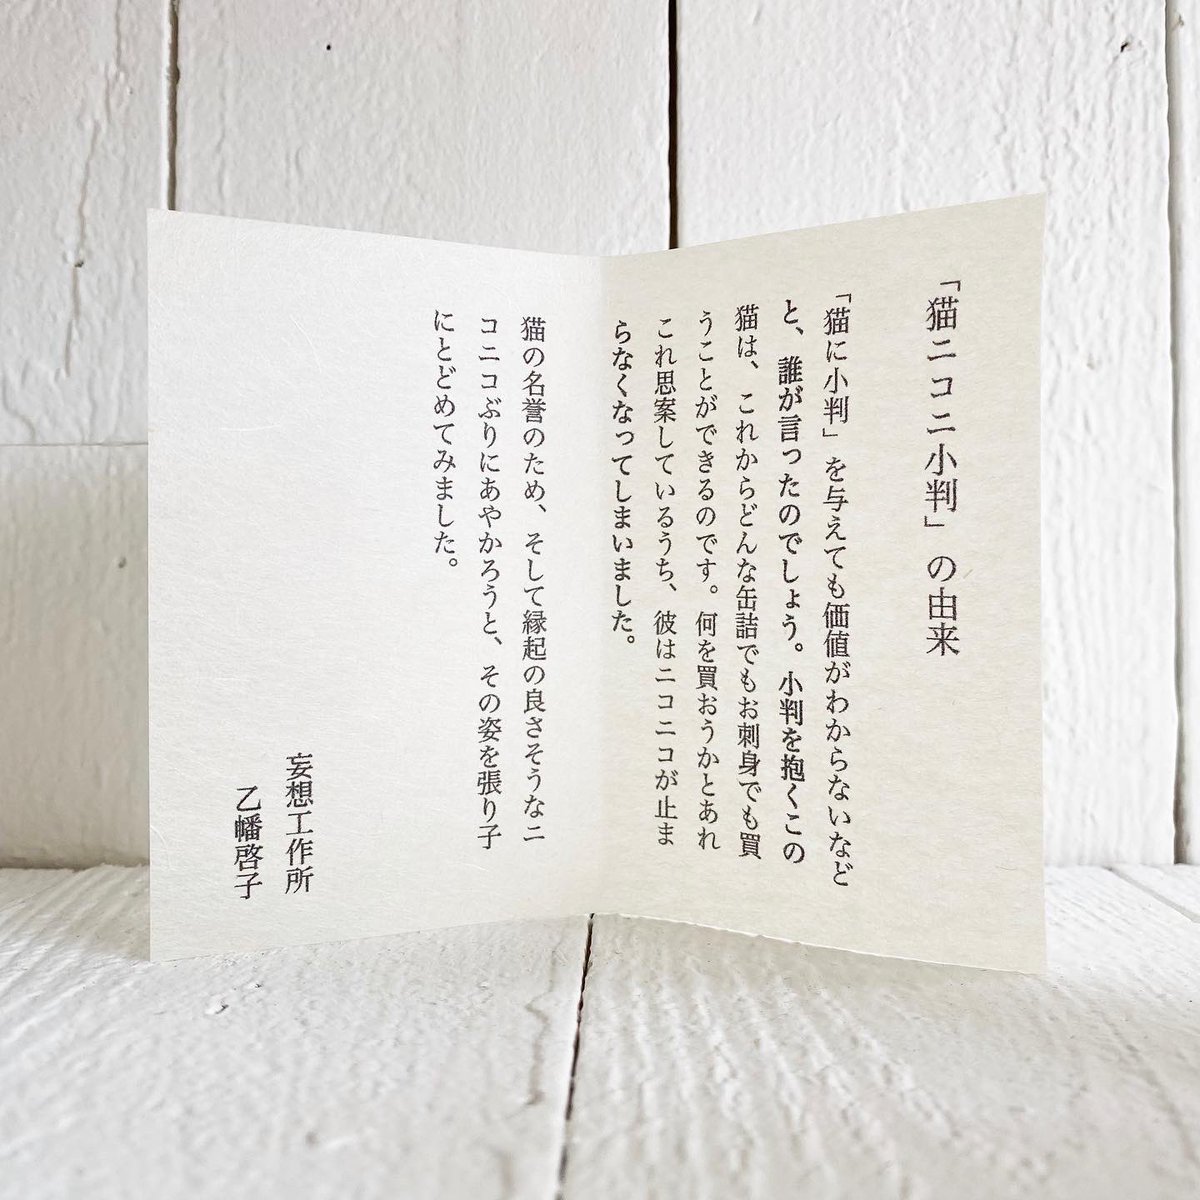 「猫ニコニ小判」の由来
「猫に小判」を与えても価値がわからないなど
と、誰が言ったのでしょう。小判を抱くこの
猫は、これからどんな缶詰でもお刺身でも買
うことができるのです。何を買おうかとあれ
これ思案しているうち、彼はニコニコが止ま
らなくなってしまいました。
猫の名誉のため、そして縁起の良さそうなニ
コニコぶりにあやかろうと、その姿を張り子
にとどめてみました。
妄想工作所
乙幡啓子